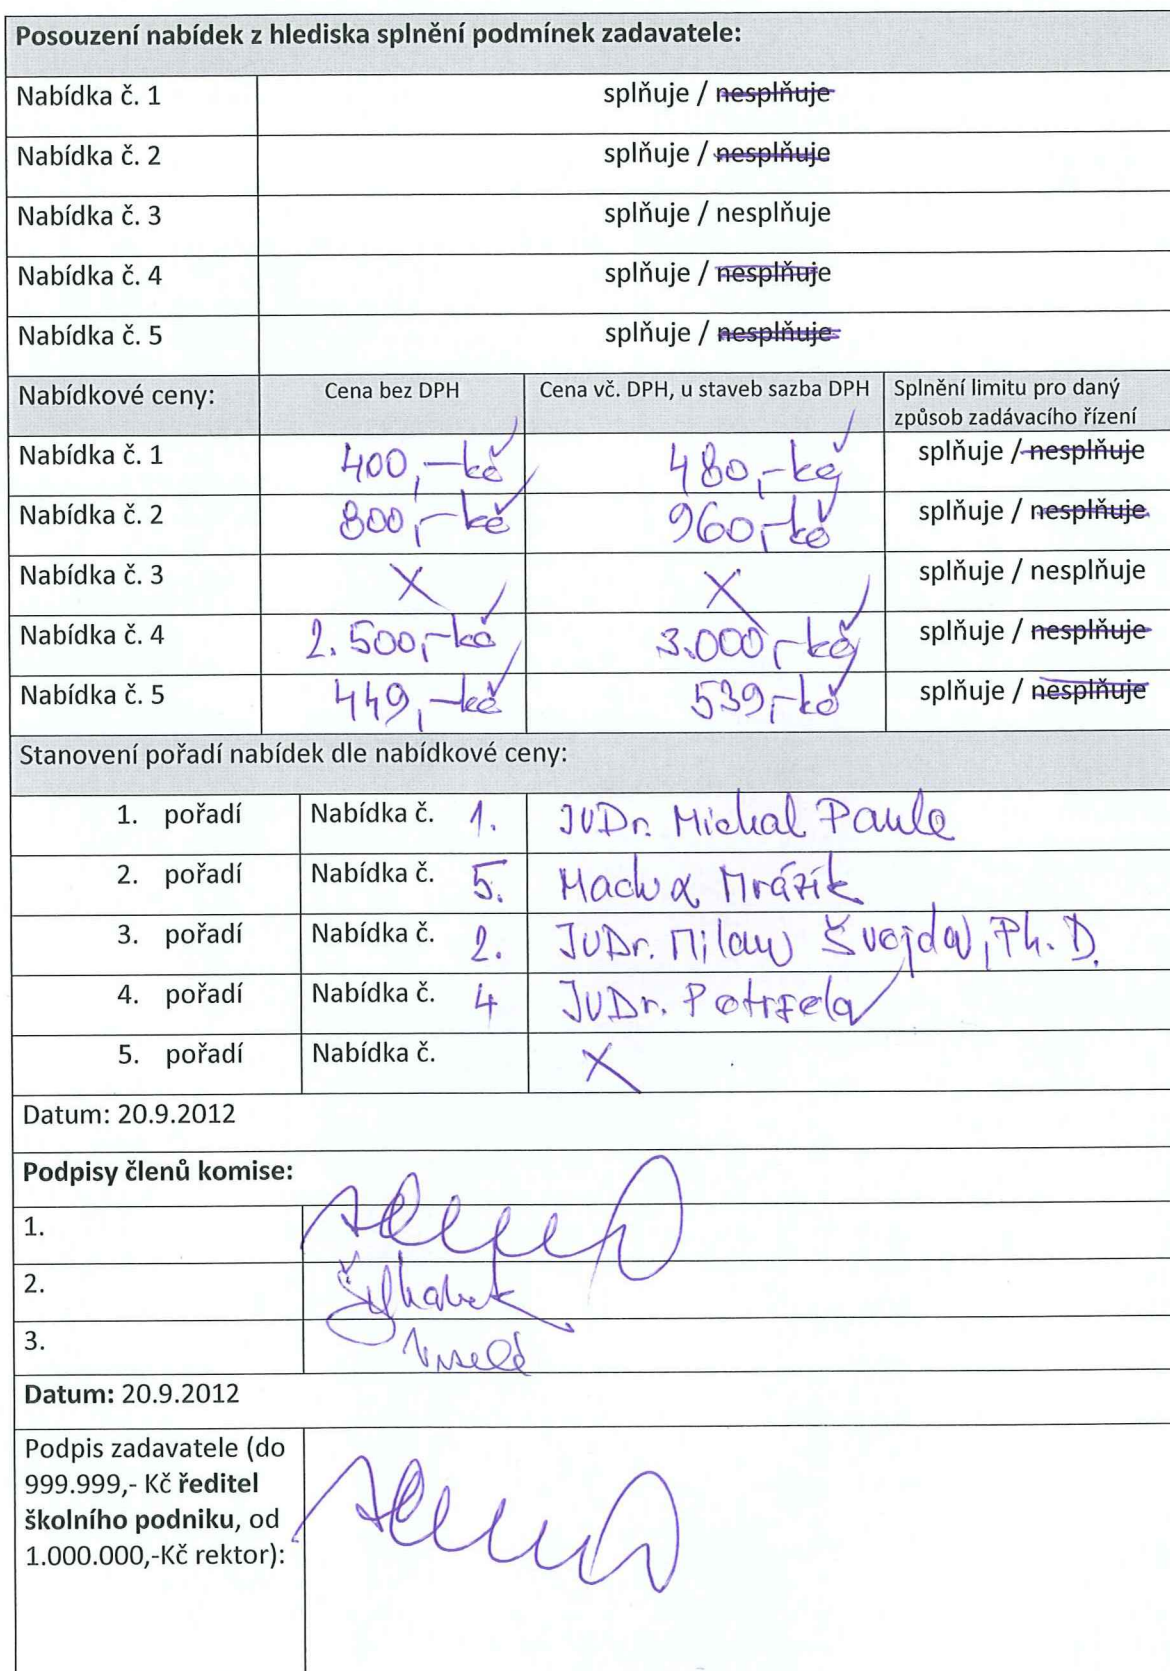 Posouzení nabídek z hlediska splnění podmínek zadavatele:
Nabídka č. 1 splňuje / nesplňuje
Nabídka č. 2 splňuje / nesplňuje
Nabídka č. 3 splňuje / nesplňuje
Nabídka č. 4 splňuje / nesplňuje
Nabídka č. 5 splňuje / nesplňuje
Nabídkové ceny: Cena bez DPH Cena vč. DPH, u staveb sazba DPH Splnění limitu pro daný
způsob zadávacího řízení
Nabídka č. 1 400,-kč 480,-kč splňuje / nesplňuje
Nabídka č. 2 800,-kč 960,-kč splňuje / nesplňuje
Nabídka č. 3 X X splňuje / nesplňuje
Nabídka č. 4 2.500,-kč 3.000,-kč splňuje / nesplňuje
Nabídka č. 5 449,-kč 539,-kč splňuje / nesplňuje
Stanovení pořadí nabídek dle nabídkové ceny:
1. pořadí Nabídka č. 1. JUDr. Michal Paule
2. pořadí Nabídka č. 5. Mrázík
3. pořadí Nabídka č. 2. JUDr. Milan Švejda, Ph.D.
4. pořadí Nabídka č. 4 JUDr. Petrzela
5. pořadí Nabídka č. X
Datum: 20.9.2012
Podpisy členů komise:
1.
2.
3.
Datum: 20.9.2012
Podpis zadavatele (do
999.999,- Kč ředitel
školního podniku, od
1.000.000,-Kč rektor):